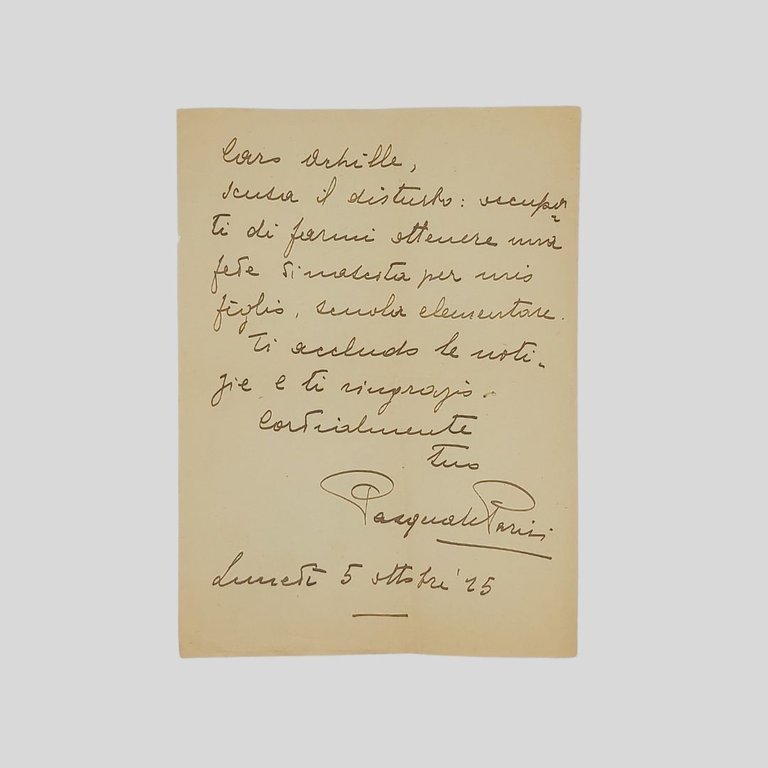 Caro Achille,
scusa il disturbo: occupa=
ti di farmi ottenere una
fede di nascita per mio
figlio, scuola elementare.
Ti accludo le noti=
zie e ti ringrazio.
Cordialmente
tuo
Pasquale Parisi
Lunedì 5 ottobre '25